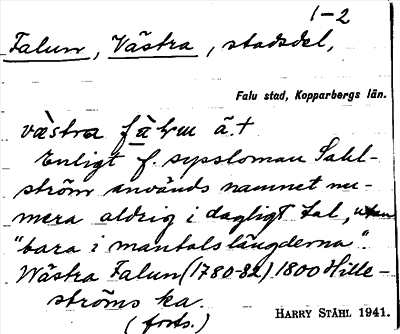 1-2
Falun, Västra, stadsdel,
Falu stad, Kopparbergs län.
västra fàlun ä.+
Enligt f. syssloman Sahl-
ström används namnet nu-
mera aldrig i dagligt tal, utan
"bara i mantalslängderna".
Wästra Falun (1780-82) 1800 Hille-
ströms ka.
(forts.)
HARRY STÅHL 1941.